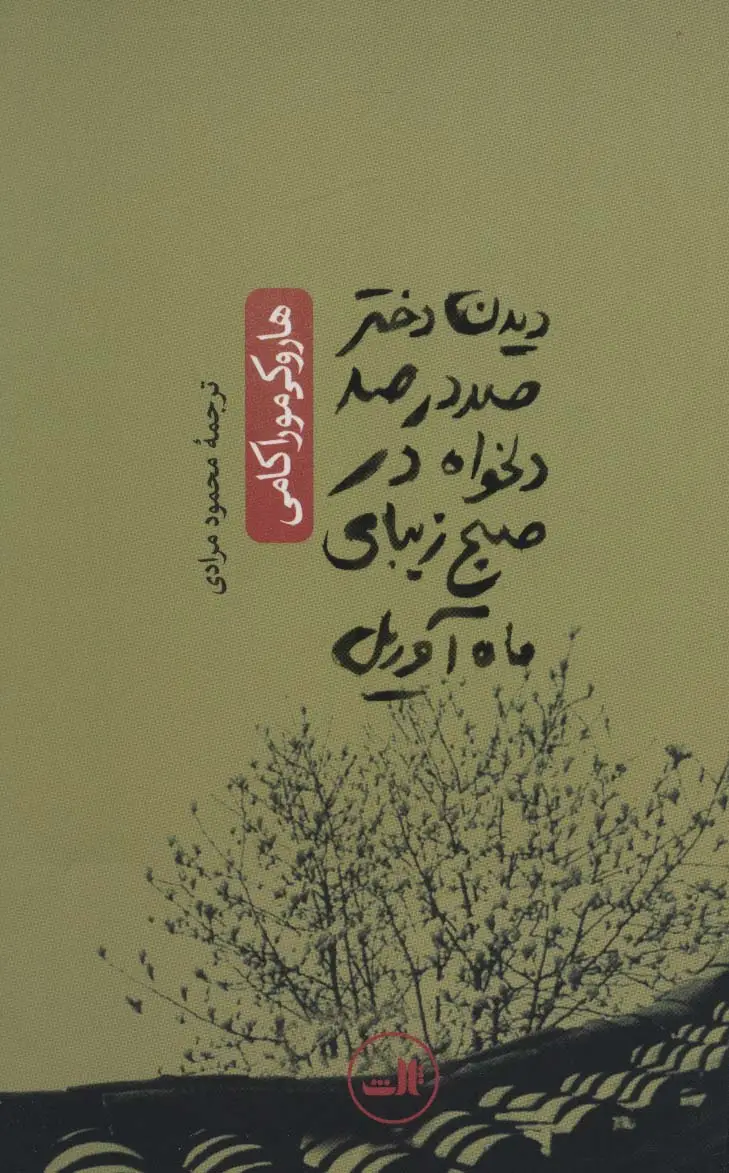 دیدن دختر
صددرصد
دلخواه در
صبح زیبای
ماه آوریل
هاروکی موراکامی
ترجمهٔ محمود مرادی
ثالث